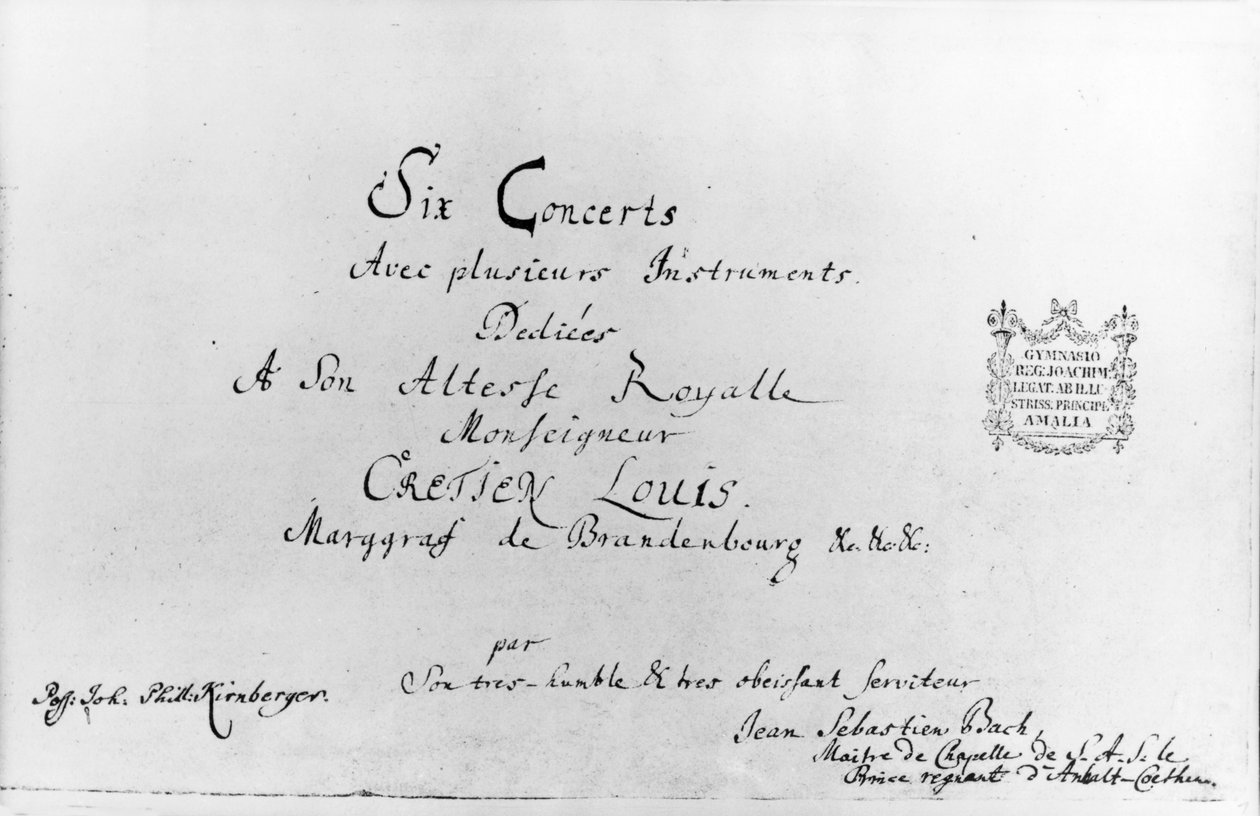 Six Concerts
Avec plusieurs Instruments.
Dediées
A Son Altesse Royalle
Monseigneur
CRETIEN LOUIS.
Marggraf de Brandenbourg &c. &c. &c:
par
Son tres-humble & tres obeissant serviteur
Jean Sebastien Bach,
Maitre de Chapelle de S. A. S. le
Prince regnant d'Anhalt-Coethen.
Poss: Joh: Phil: Kirnberger.
GYMNASIO
REG: JOACHIM
LEGAT. AB ILLU
STRISS. PRINCIPE
AMALIA